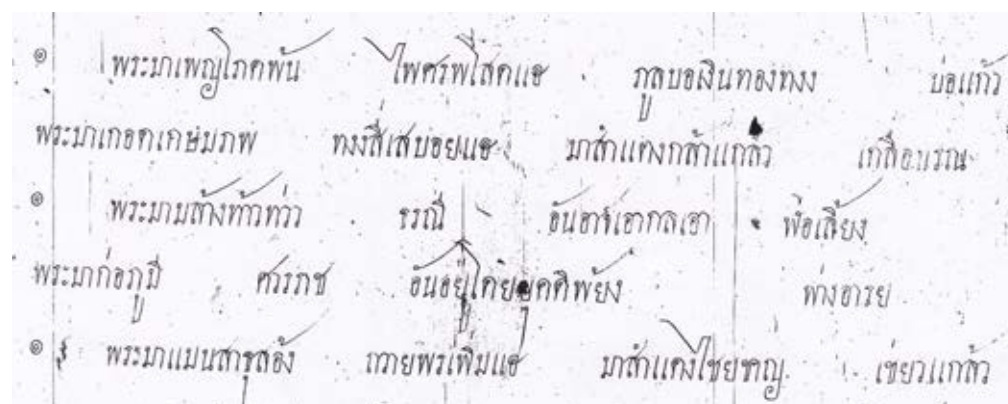 ๏ พระมาเพญโภคพ้น ไพศรพโสดแฮ ภูลบอเงินทองทงง บ่อแก้ว
พระมาเกอดเกษมภพ ทงงสี่เสบอยแฮ มาสำแดงกล้าแกล้ว เกลื่อบรรณ
๏ พระมามล้างท้าวทว่ว ธรณี อันอาจ์เอากลเอา พ้อเสี้ยง
พระมาก่อภูมี ศวรราช อันอยู่โดยยุคติพยัง พ่างอารย
๏ พระมาแมนสาธุลอ้ง ถวายพรเพิ่มแฮ มาสำแดงไชยชาญ เชยวแกล้ว